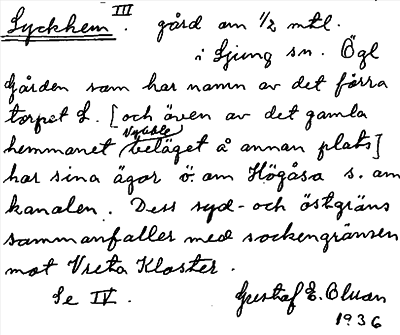 Lyckhem III. gård om 1/2 mtl.
i Ljung sn. Ögl
Gården som har namn av det förra
torpet L. [och även av det gamla
hemmanet beläget å annan plats]
har sina ägor ö. om Högåsa s. om
kanalen. Dess syd- och östgräns
sammanfaller med sockengränsen
mot Vreta Kloster.
Se IV. Gustaf E. Bluan
1936